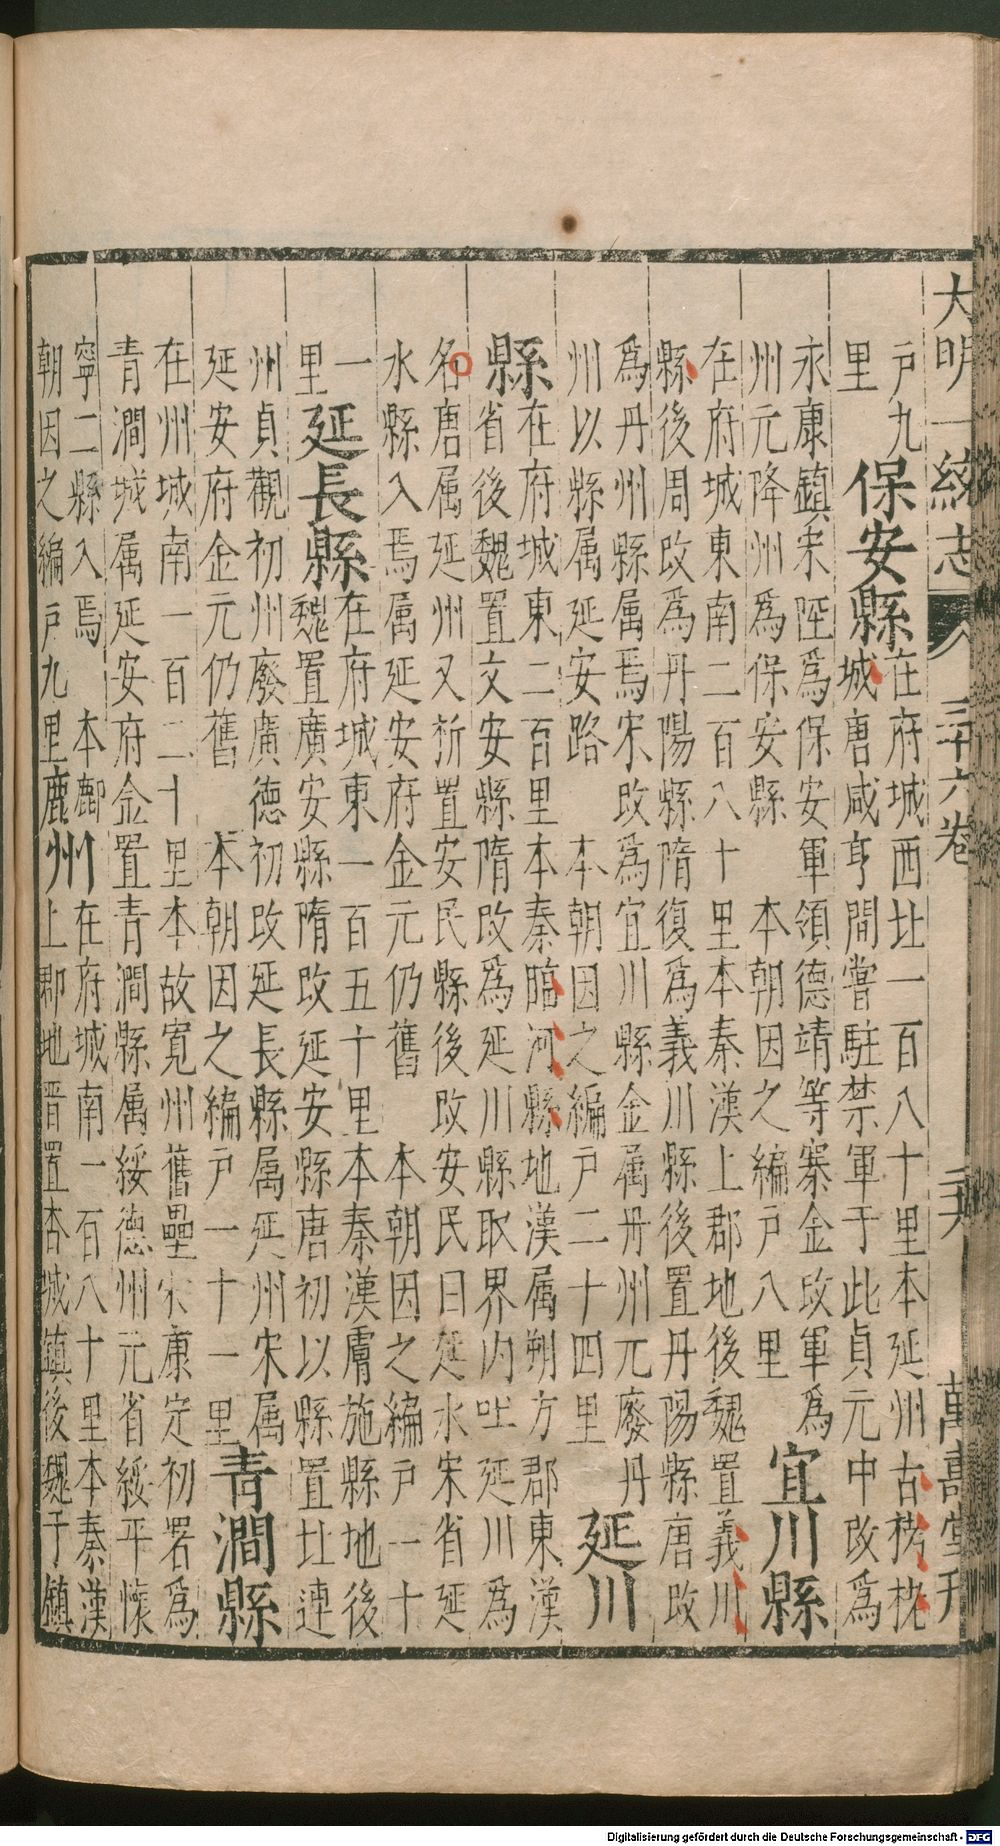 大明一統志 三十六卷 二六 萬壽堂刊
戶九
里
保安縣
在府城西北一百八十里本延州古栲栳
城唐咸亨間嘗駐禁軍于此貞元中改為
永康鎮宋陞為保安軍領德靖等寨金改軍為
州元降州為保安縣 本朝因之編戶八里
宜川縣
在府城東南二百八十里本秦漢上郡地後魏置義川
縣後周改為丹陽縣隋復為義川縣後置丹陽縣唐改
為丹州縣属焉宋改為宜川縣金属丹州元廢丹
州以縣属延安路 本朝因之編戶二十四里
延川
縣
在府城東二百里本秦臨河縣地漢属朔方郡東漢
省後魏置文安縣隋改為延川縣取界内吐延川為
名唐属延州又析置安民縣後改安民曰延水宋省延
水縣入焉属延安府金元仍舊 本朝因之編戶一十
一
里
延長縣
在府城東一百五十里本秦漢膚施縣地後
魏置廣安縣隋改延安縣唐初以縣置北連
州貞觀初州廢廣德初改延長縣属延州宋属
延安府金元仍舊 本朝因之編戶一十一里
青澗縣
在州城南一百二十里本故寬州舊壘宋康定初署為
青澗城属延安府金置青澗縣属綏德州元省綏平懷
寧二縣入焉 本
朝因之編戶九里
鄜州
在府城南一百八十里本秦漢
上郡地晋置杏城鎮後魏于鎮
Digitalisierung gefördert durch die Deutsche Forschungsgemeinschaft - DFG